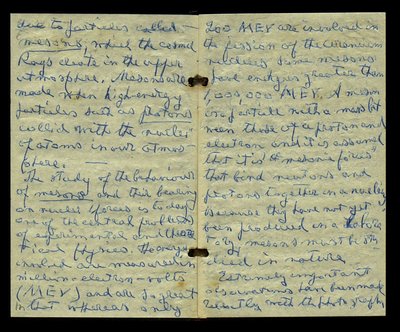 due to particles called
mesons, which the cosmic
Rays create in the upper
atmosphere. Mesons are
made when high energy
particles such as protons
collide with the nuclei
of atoms in our atmos
phere. —
The study of the behaviour
of mesons and their bearing
on nuclear forces is to day
one of the central problems
of experimental and theore
tical Physics. The energies
involved are measured in
million-electron-volts
(MEV) and are so great
that whereas only
200 MEV are involved in
the fission of the uranium
nucleus some mesons
have energies greater than
1,000,000 MEV. A meson
is a particle with a mass bet
ween those of a proton and
electron and it is assumed
that it is the mesonic forces
that bind neutrons and
protons together in a nucleus
because they have not yet
been produced in a labora
tory mesons must be stu
died in nature.
Extremely important
discoveries have been made
recently with the photograph